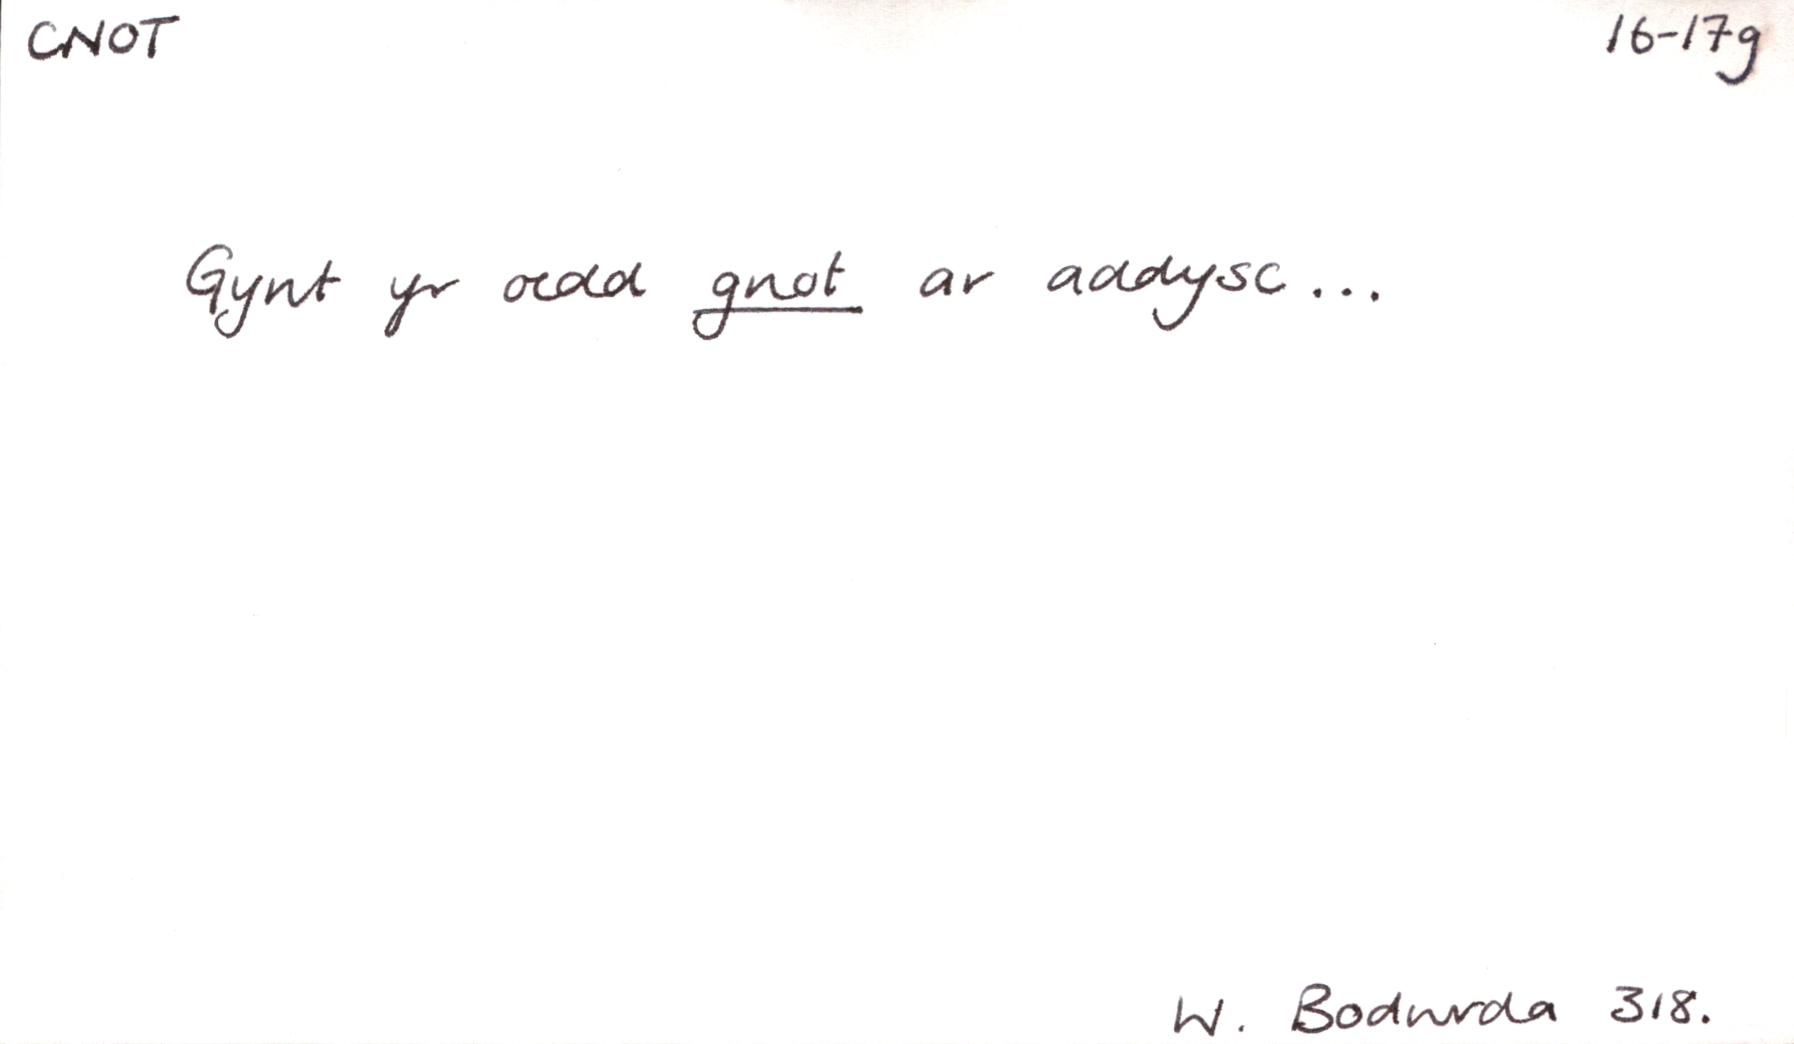 CNOT 16-17g
Gynt yr oedd gnot ar addysc...
W. Bodwrda 318.